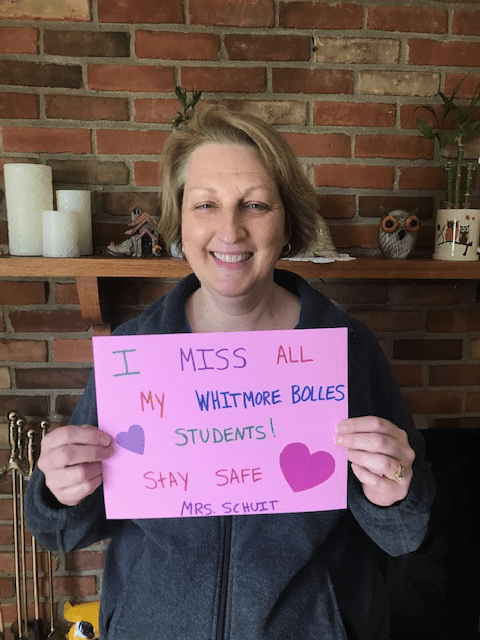 I MISS ALL
MY WHITMORE BOLLES
STUDENTS!
StAY SAFE
MRS. SCHUIT